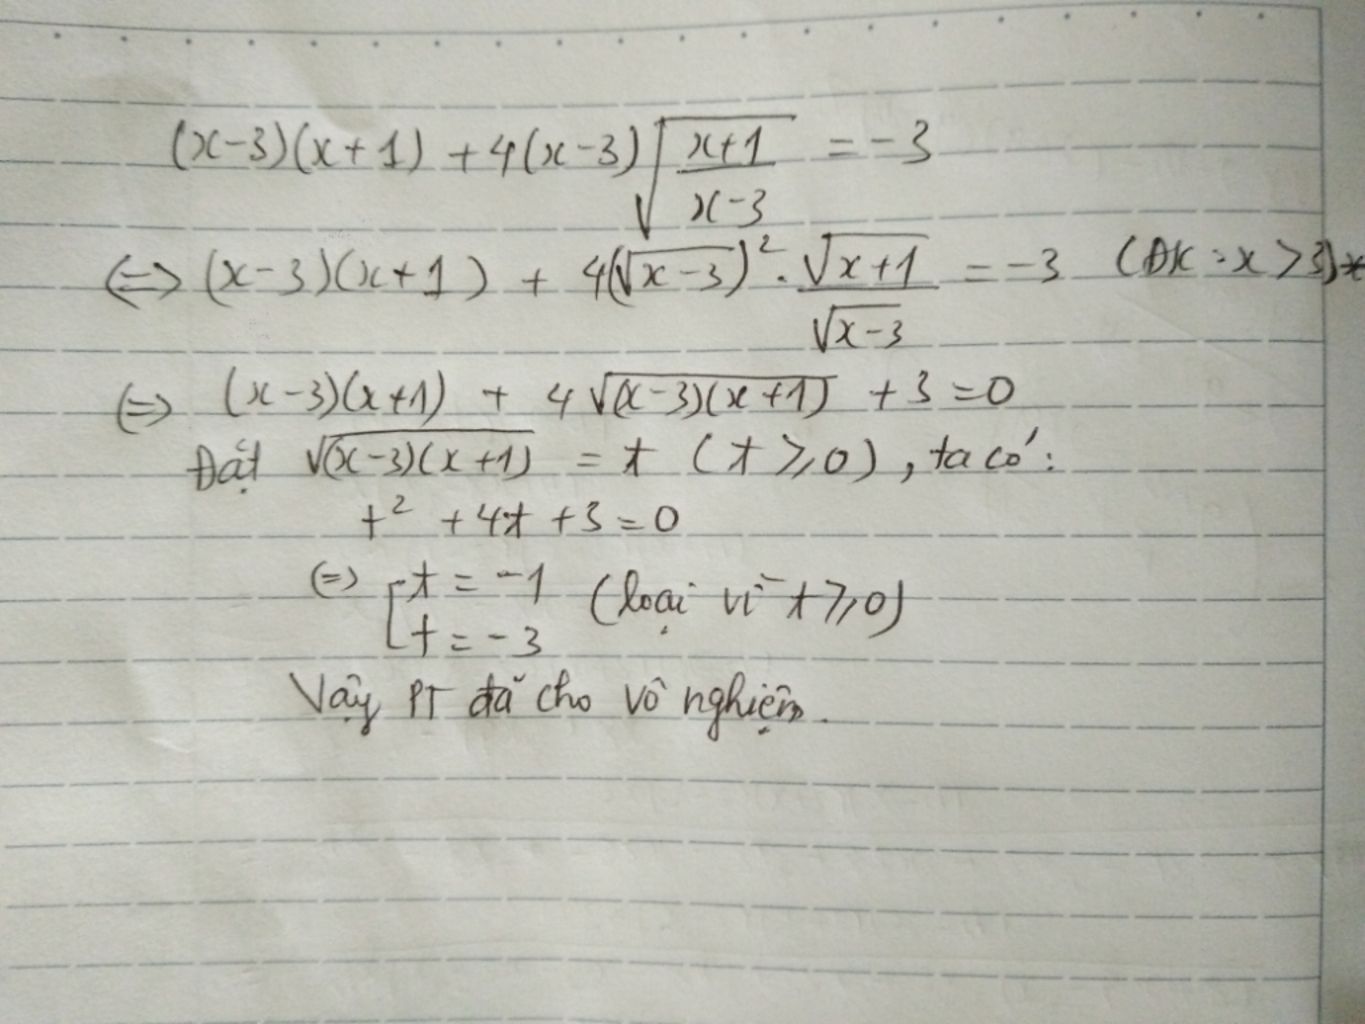 (x-3)(x+1) + 4(x-3)√((x+1)/(x-3)) = -3
⇔ (x-3)(x+1) + 4(√(x-3))² . √(x+1)/√(x-3) = -3 (ĐK: x > 3)*
⇔ (x-3)(x+1) + 4√((x-3)(x+1)) + 3 = 0
Đặt √((x-3)(x+1)) = t (t ⩾ 0), ta có:
t² + 4t + 3 = 0
⇔ [ t = -1
t = -3 (loại vì t ⩾ 0)
Vậy PT đã cho vô nghiệm.